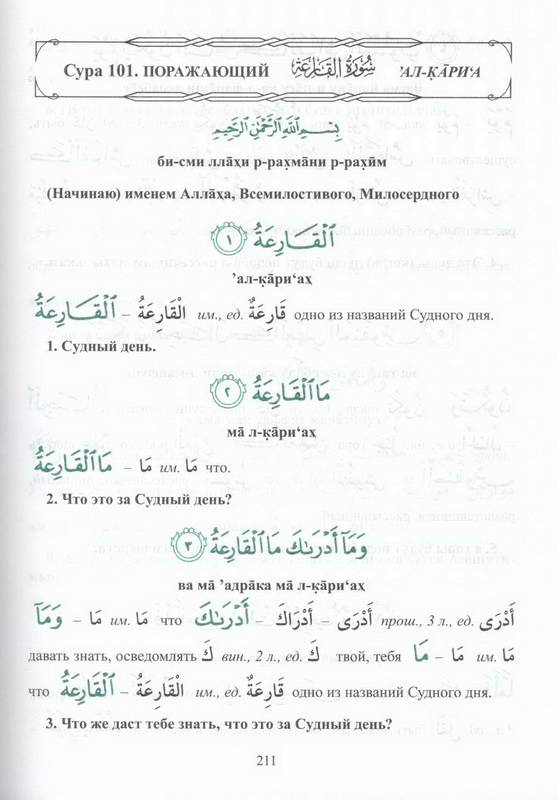 Сура 101. ПОРАЖАЮЩИЙ سُورَةُ القَارِعَة ’АЛ-К̣А̄РИ‘А
بِسْمِ اللَّهِ الرَّحْمَٰنِ الرَّحِيمِ
би-сми лла̄хи р-рах̣ма̄ни р-рах̣ӣм
(Начинаю) именем Алла̄ха, Всемилостивого, Милосердного
ٱلْقَارِعَةُ ١
’ал-к̣а̄ри‘ах̣
ٱلْقَارِعَةُ – الْقَارِعَةُ им., ед. قَارِعَةٌ одно из названий Судного дня.
1. Судный день.
مَا ٱلْقَارِعَةُ ٢
ма̄ л-к̣а̄ри‘ах̣
مَا ٱلْقَارِعَةُ – مَا им. مَا что.
2. Что это за Судный день?
وَمَآ أَدْرَىٰكَ مَا ٱلْقَارِعَةُ ٣
ва ма̄ ’адра̄ка ма̄ л-к̣а̄ри‘ах̣
وَمَآ – مَا им. مَا что أَدْرَىٰكَ – أَدْرَاكَ – أَدْرَى прош., 3 л., ед. أَدْرَى
давать знать, осведомлять كَ вин., 2 л., ед. كَ твой, тебя مَا – مَا им. مَا
что ٱلْقَارِعَةُ – الْقَارِعَةُ им., ед. قَارِعَةٌ одно из названий Судного дня.
3. Что же даст тебе знать, что это за Судный день?
211